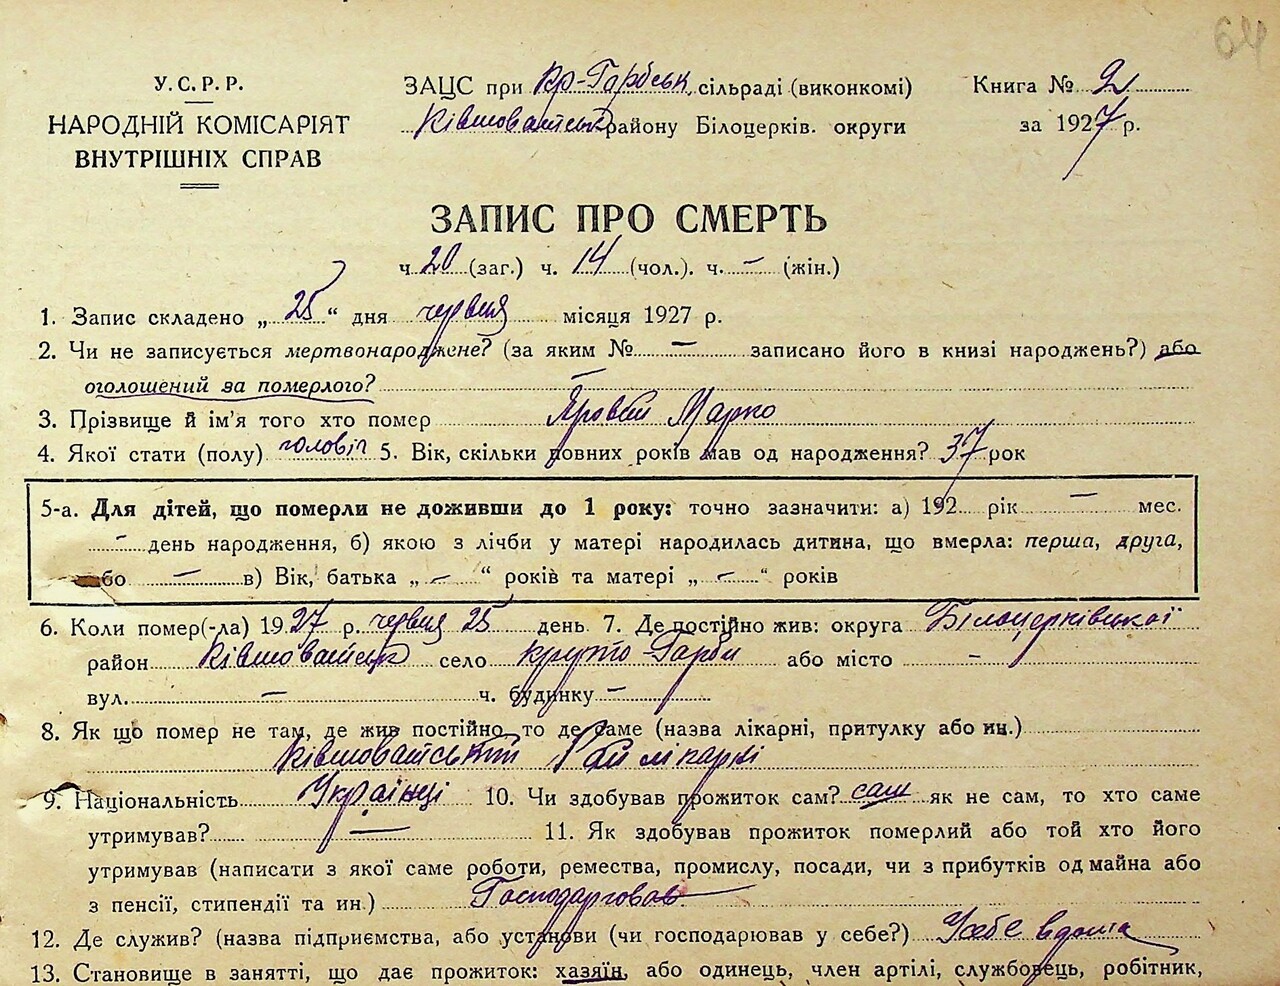 64
У.С.Р.Р.
НАРОДНІЙ КОМІСАРІЯТ
ВНУТРІШНІХ СПРАВ
ЗАЦС при Кр-Гарбськ. сільраді (виконкомі)
Ківшоватськ району Білоцерків. округи
Книга № 2
за 1927 р.
ЗАПИС ПРО СМЕРТЬ
ч. 20 (заг.) ч. 14 (чол.). ч. – (жін.)
1. Запис складено „25“ дня червня місяця 1927 р.
2. Чи не записується мертвонароджене? (за яким № – записано його в книзі народжень?) або
оголошений за померлого? –
3. Прізвище й ім'я того хто помер Яровий Марко
4. Якої стати (полу) чоловіч 5. Вік, скільки повних років мав од народження? 37 рок
5-а. Для дітей, що померли не доживши до 1 року: точно зазначити: а) 192 рік – мес.
– день народження, б) якою з лічби у матері народилась дитина, що вмерла: перша, друга,
або – в) Вік, батька „ – “ років та матері „ – “ років
6. Коли помер(-ла) 1927 р. червня 25 день 7. Де постійно жив: округа Білоцерківської
район Ківшоватськ село Круто-Гарби або місто –
вул. – ч. будинку –
8. Як що помер не там, де жив постійно, то де саме (назва лікарні, притулку або ин.)
Ківшоватській Рай лікарні
9. Національність Українці 10. Чи здобував прожиток сам? сам як не сам, то хто саме
утримував? – 11. Як здобував прожиток померлий або той хто його
утримував (написати з якої саме роботи, ремества, промислу, посади, чи з прибутків од майна або
з пенсії, стипендії та ин.) Господарював
12. Де служив? (назва підприємства, або установи (чи господарював у себе?) У себе вдома
13. Становище в занятті, що дає прожиток: хазяїн, або одинець, член артілі, службовець, робітник,